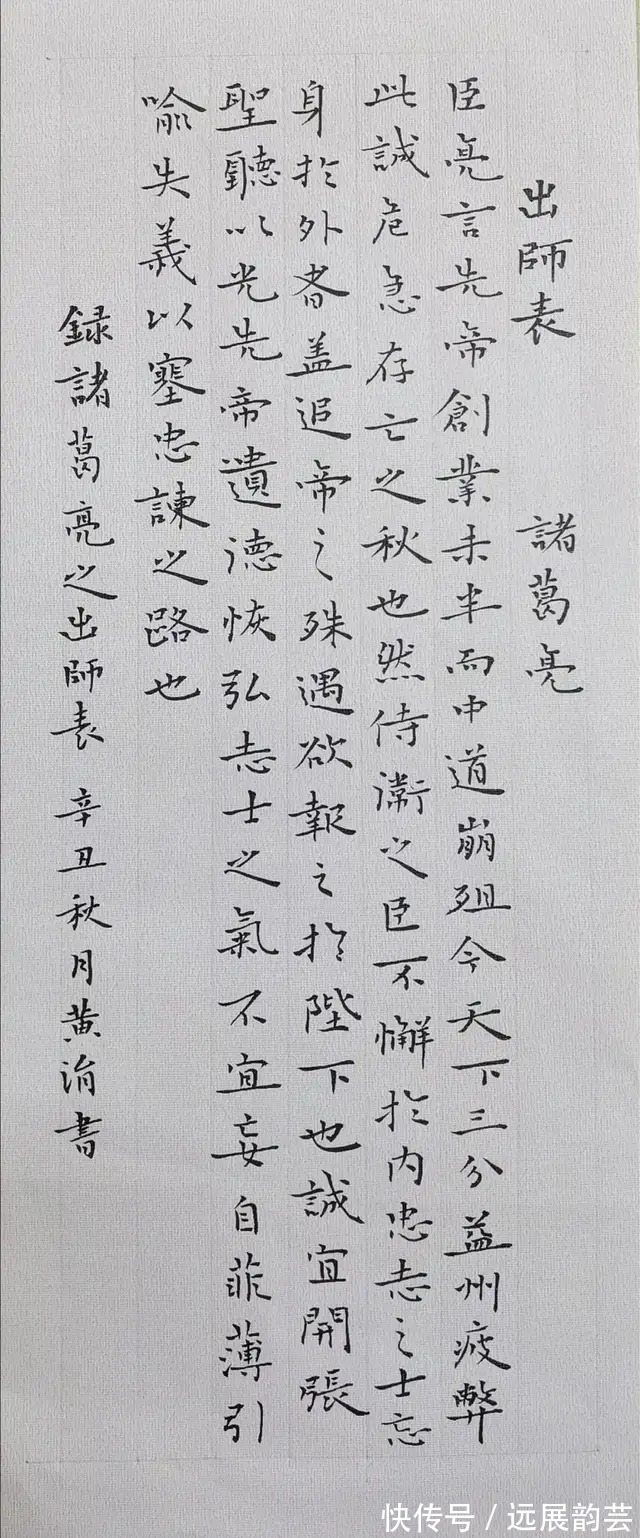 出師表 諸葛亮
臣亮言先帝創業未半而中道崩殂今天下三分益州疲弊
此誠危急存亡之秋也然侍衛之臣不懈於内忠志之士忘
身於外者盖追帝之殊遇欲報之於陛下也誠宜開張
聖聽以光先帝遺德恢弘志士之氣不宜妄自菲薄引
喻失義以塞忠諫之路也
録諸葛亮之出師表 辛丑秋月黄涓書
快传号／远展韵芸